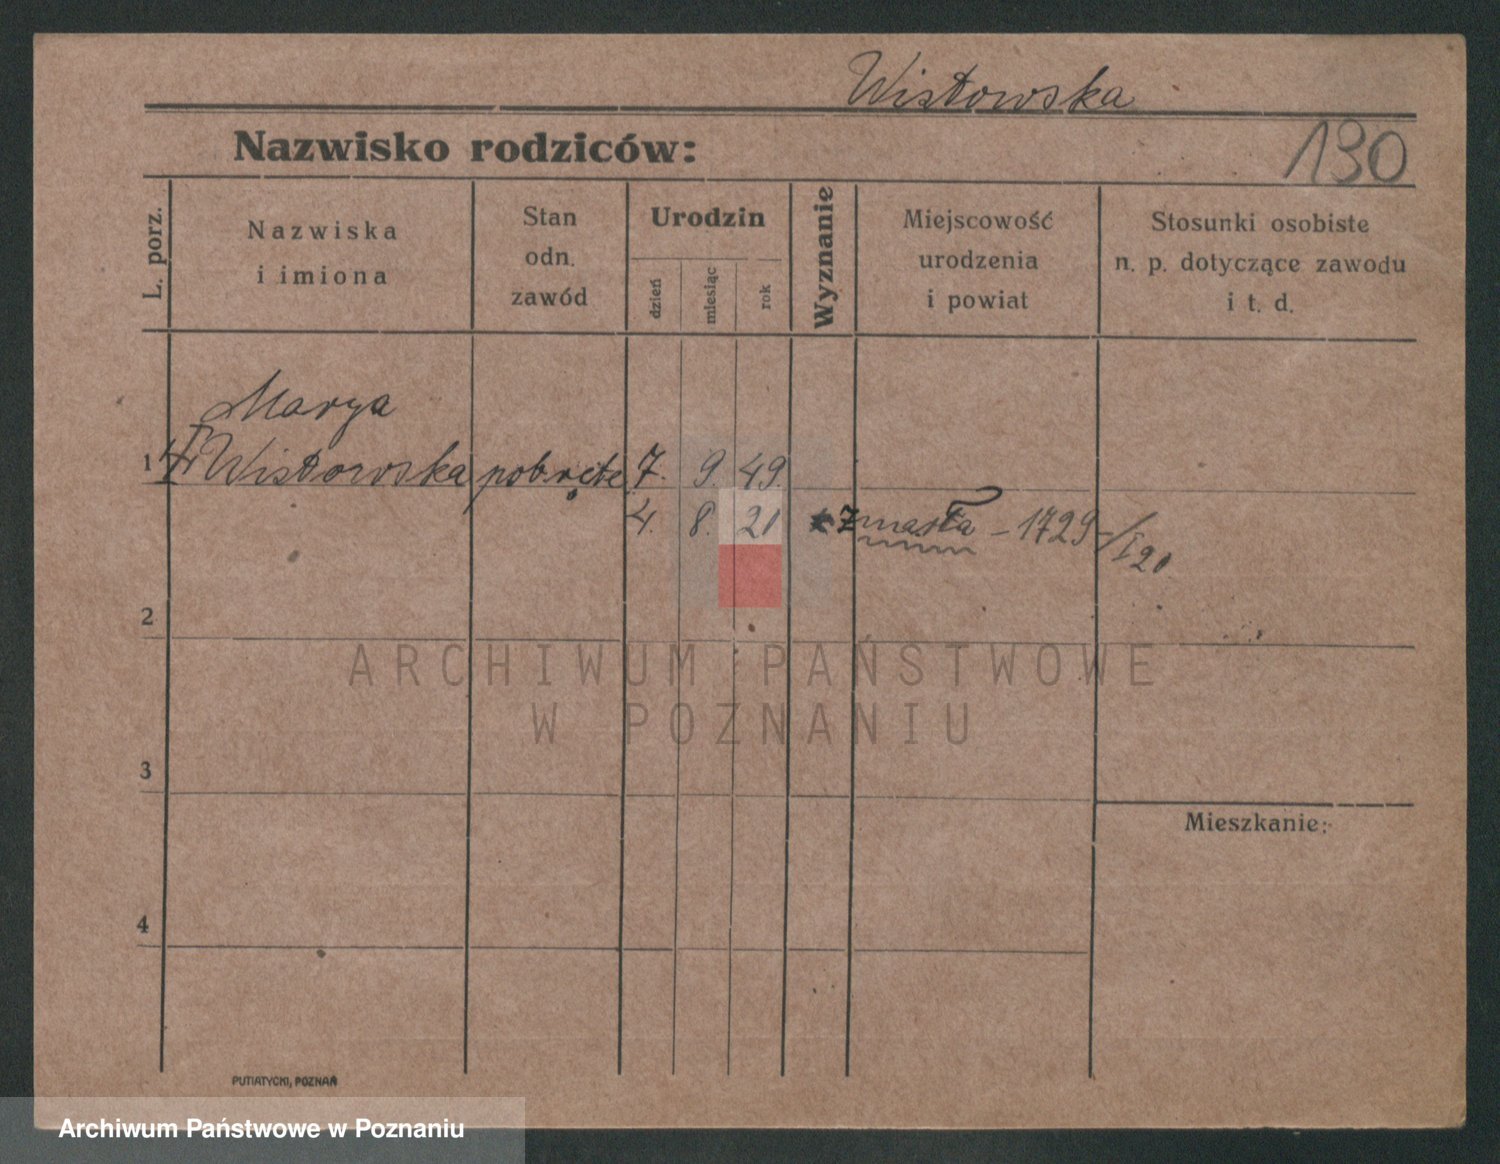 Wistowska
Nazwisko rodziców:
130
L. porz.
Nazwiska
i imiona
Stan
odn.
zawód
Urodzin
dzień
miesiąc
rok
Wyznanie
Miejscowość
urodzenia
i powiat
Stosunki osobiste
n. p. dotyczące zawodu
i t. d.
Marya
1 Wistowska 7. 9. 49.
4. 8. 21 zmarła - 1729/I 20
2
ARCHIWUM PAŃSTWOWE
W POZNANIU
3
Mieszkanie:
4
PUTIATYCKI, POZNAŃ
Archiwum Państwowe w Poznaniu